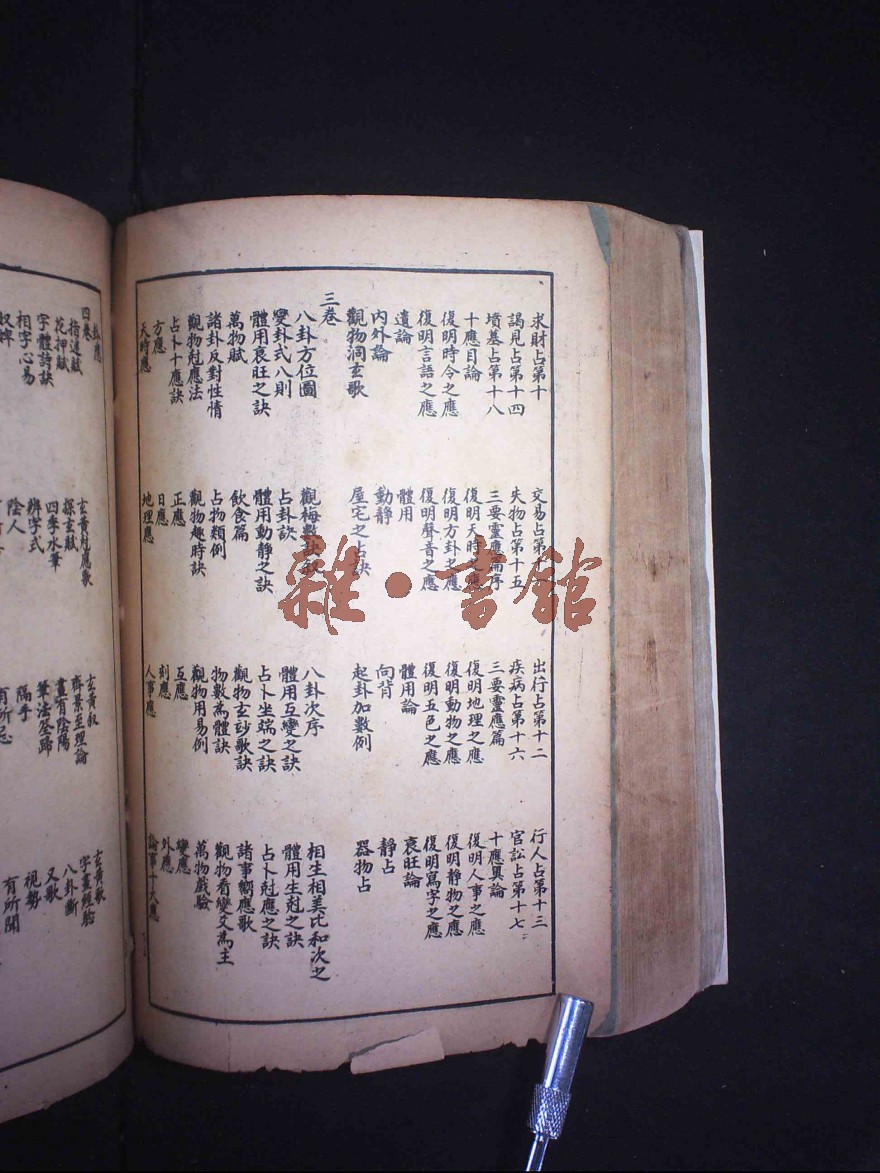 求財占第十 交易占第十 出行占第十二 行人占第十三
謁見占第十四 失物占第十五 疾病占第十六 官訟占第十七
墳墓占第十八 三要靈應篇序 三要靈應篇 十應奧論
十應目論 復明天時之應 復明地理之應 復明人事之應
復明時令之應 復明方卦之應 復明動物之應 復明静物之應
復明言語之應 復明聲音之應 復明五色之應 復明寫字之應
遺論 體用 體用論 衰旺論
內外論 動静 向背 静占
觀物洞玄歌 屋宅之占訣 起卦加數例 器物占
三卷
八卦方位圖 觀梅數訣敘 八卦次序 相生相美比和次之
變卦式八則 占卦訣 體用互變之訣 體用生尅之訣
體用衰旺之訣 體用動静之訣 占卜坐端之訣 占卜尅應之訣
萬物賦 飲食篇 觀物玄妙歌訣 諸事嚮應歌
諸卦反對性情 占物類例 物數為體訣 觀物看變爻為主
觀物尅應法 觀物趣時訣 觀物用易例 萬物戲驗
占卜十應訣 正應 互應 變應
方應 日應 刻應 外應
天時應 地理應 人事應 論事十大應
卦應
四卷
指迷賦 玄黃尅應歌 玄黃敘 玄黃歌
花押賦 探玄賦 齊景至理論 字畫經驗
字體詩訣 四季水筆 畫有陰陽 八卦斷
相字心易 辨字式 筆法筌蹄 又歌
奴婢 陰人 隔手 視勢
有所忌 有所聞
雜·書館